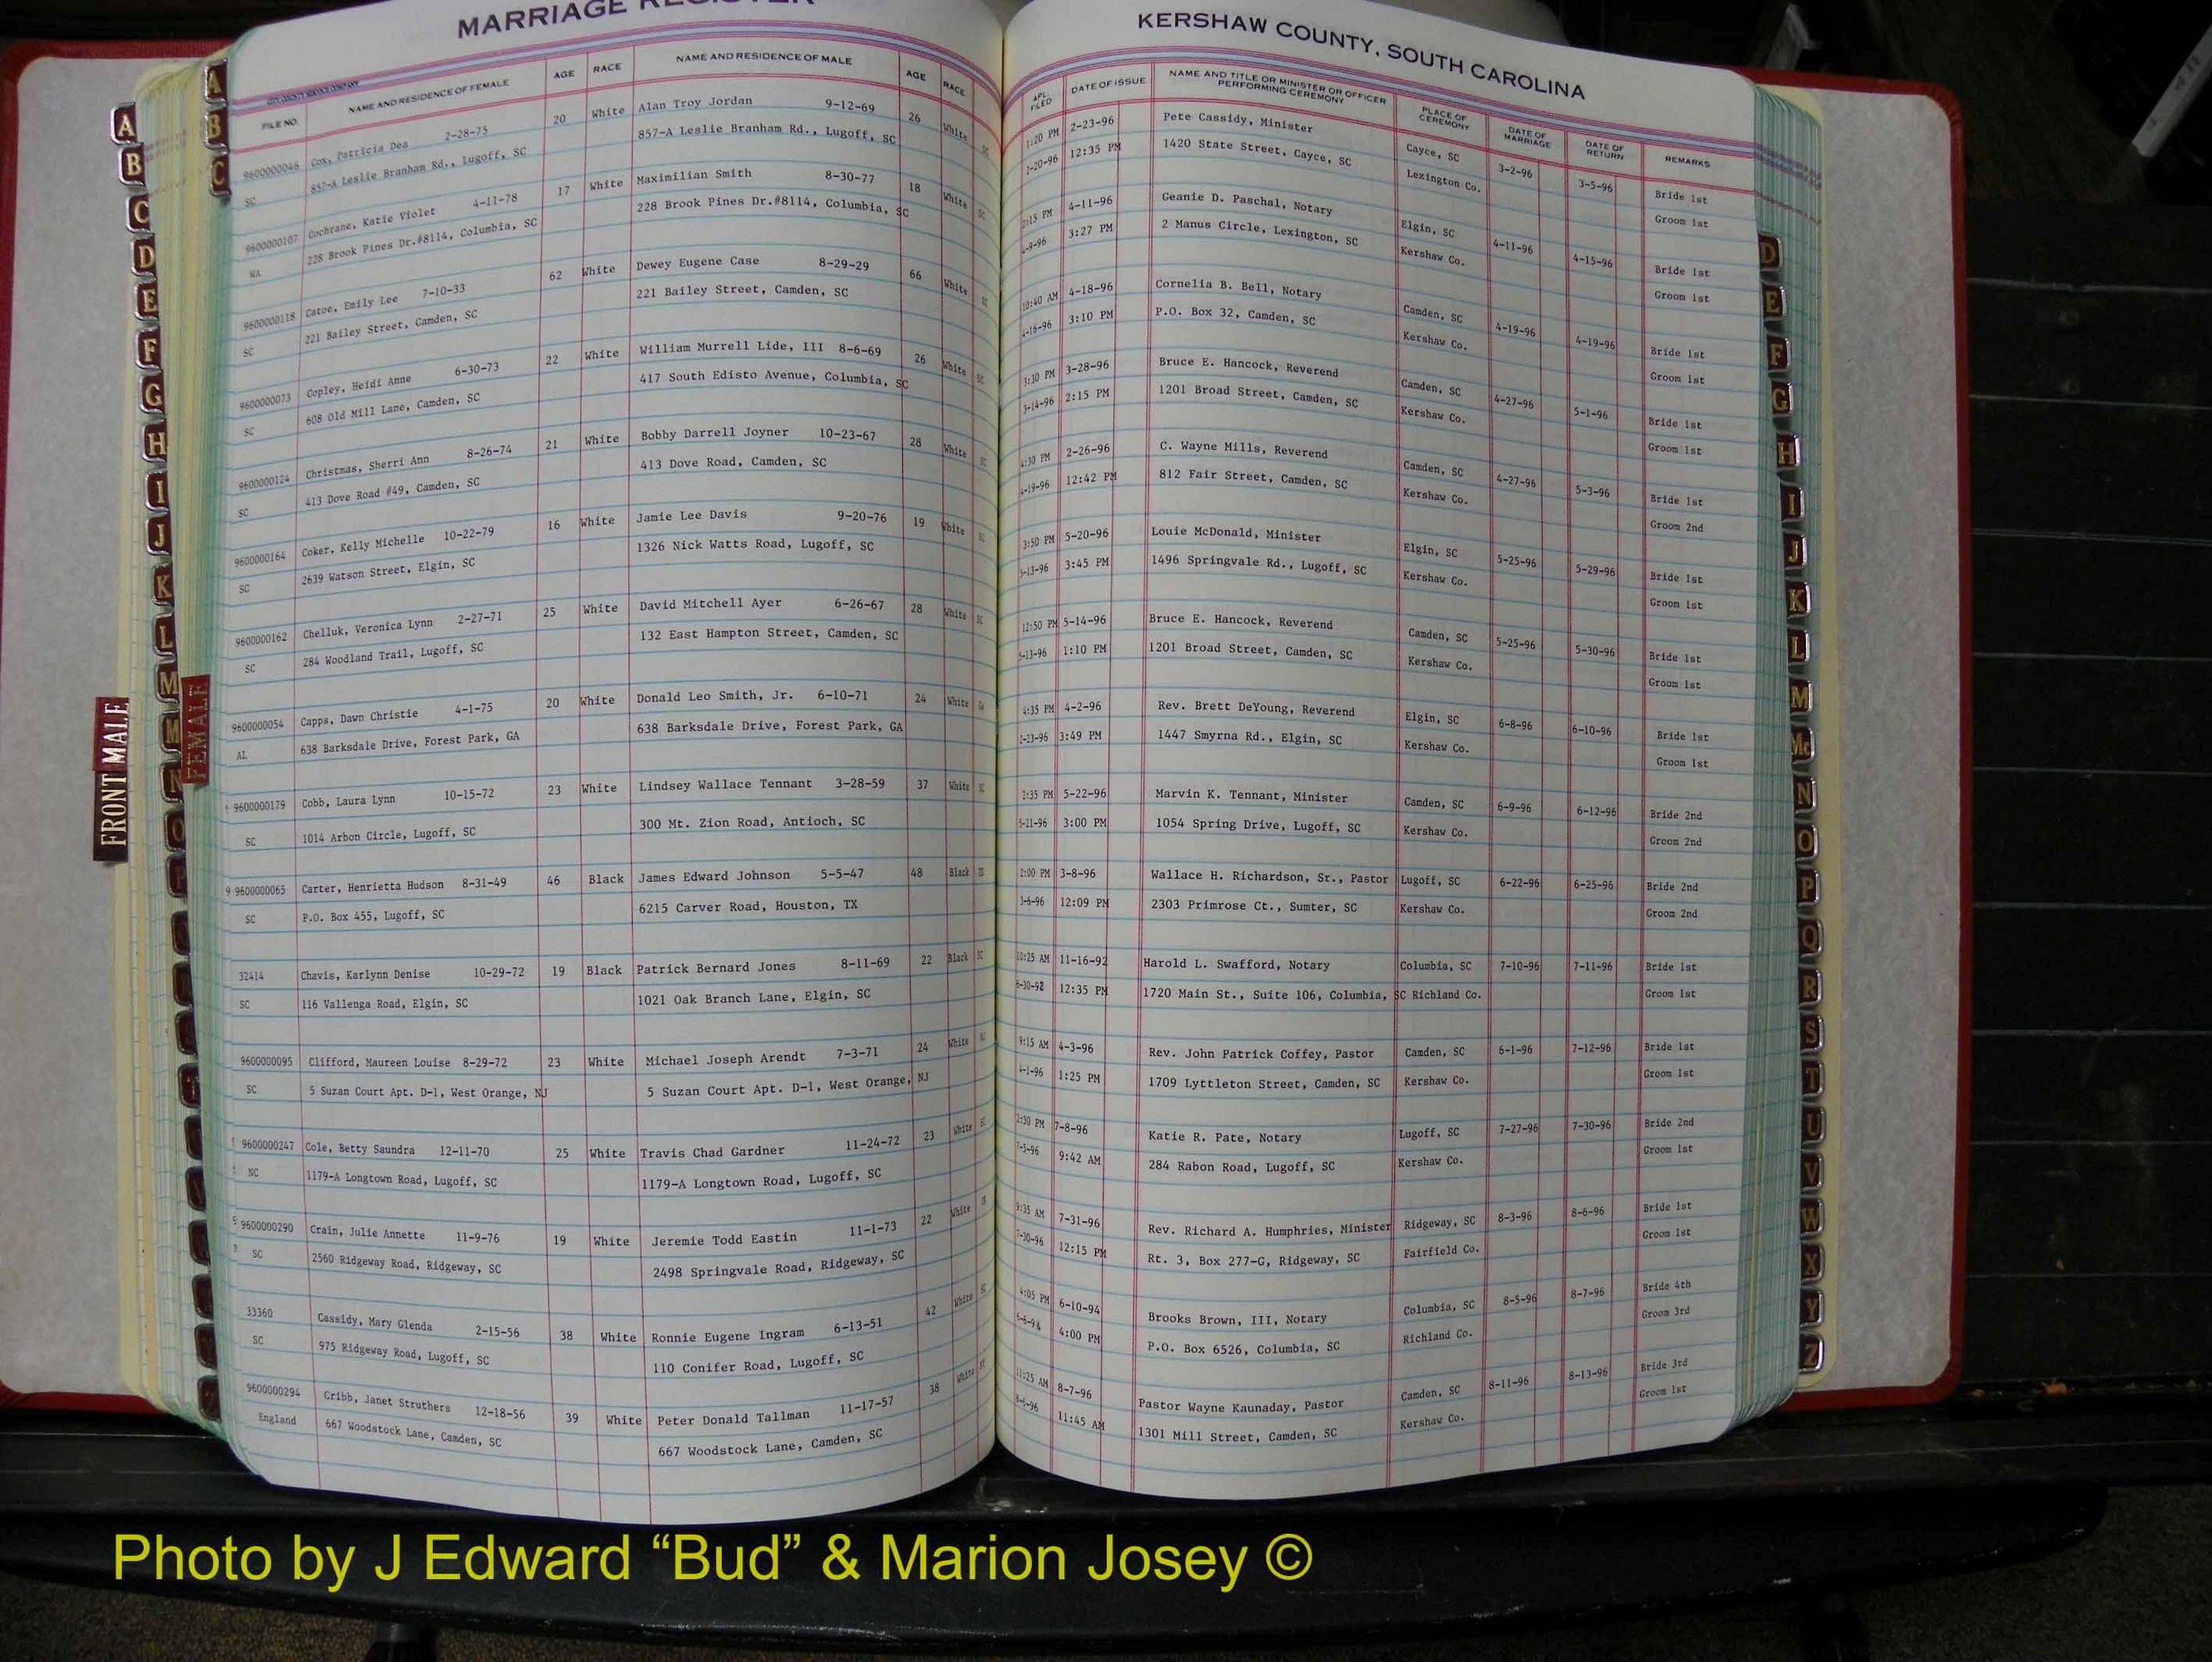 MARRIAGE REGISTER
KERSHAW COUNTY, SOUTH CAROLINA
FILE NO. NAME AND RESIDENCE OF FEMALE AGE RACE NAME AND RESIDENCE OF MALE AGE RACE APL. FILED DATE OF ISSUE NAME AND TITLE OR MINISTER OR OFFICER PERFORMING CEREMONY PLACE OF CEREMONY DATE OF MARRIAGE DATE OF RETURN REMARKS
9600000046 Cox, Patricia Dea 2-28-75 20 White Alan Troy Jordan 9-12-69 26 White 1:20 PM 2-23-96 Pete Cassidy, Minister Cayce, SC 3-2-96 3-5-96 Bride 1st
SC 857-A Leslie Branham Rd., Lugoff, SC 857-A Leslie Branham Rd., Lugoff, SC SC 2-20-96 12:35 PM 1420 State Street, Cayce, SC Lexington Co. Groom 1st
9600000107 Cochrane, Katie Violet 4-11-78 17 White Maximilian Smith 8-30-77 18 White SC 2:15 PM 4-11-96 Geanie D. Paschal, Notary Elgin, SC 4-11-96 4-15-96 Bride 1st
WA 228 Brook Pines Dr.#8114, Columbia, SC 228 Brook Pines Dr.#8114, Columbia, SC 4-9-96 3:27 PM 2 Manus Circle, Lexington, SC Kershaw Co. Groom 1st
9600000118 Catoe, Emily Lee 7-10-33 62 White Dewey Eugene Case 8-29-29 66 White SC 10:40 AM 4-18-96 Cornelia B. Bell, Notary Camden, SC 4-19-96 4-19-96 Bride 1st
SC 221 Bailey Street, Camden, SC 221 Bailey Street, Camden, SC 4-16-96 3:10 PM P.O. Box 32, Camden, SC Kershaw Co. Groom 1st
9600000073 Copley, Heidi Anne 6-30-73 22 White William Murrell Lide, III 8-6-69 26 White SC 3:30 PM 3-28-96 Bruce E. Hancock, Reverend Camden, SC 4-27-96 5-1-96 Bride 1st
SC 608 Old Mill Lane, Camden, SC 417 South Edisto Avenue, Columbia, SC 3-14-96 2:15 PM 1201 Broad Street, Camden, SC Kershaw Co. Groom 1st
9600000124 Christmas, Sherri Ann 8-26-74 21 White Bobby Darrell Joyner 10-23-67 28 White SC 4:30 PM 2-26-96 C. Wayne Mills, Reverend Camden, SC 4-27-96 5-3-96 Bride 1st
SC 413 Dove Road #49, Camden, SC 413 Dove Road, Camden, SC 4-19-96 12:42 PM 812 Fair Street, Camden, SC Kershaw Co. Groom 2nd
9600000164 Coker, Kelly Michelle 10-22-79 16 White Jamie Lee Davis 9-20-76 19 White SC 3:50 PM 5-20-96 Louie McDonald, Minister Elgin, SC 5-25-96 5-29-96 Bride 1st
SC 2639 Watson Street, Elgin, SC 1326 Nick Watts Road, Lugoff, SC 5-13-96 3:45 PM 1496 Springvale Rd., Lugoff, SC Kershaw Co. Groom 1st
9600000162 Chelluk, Veronica Lynn 2-27-71 25 White David Mitchell Ayer 6-26-67 28 White SC 12:50 PM 5-14-96 Bruce E. Hancock, Reverend Camden, SC 5-25-96 5-30-96 Bride 1st
SC 284 Woodland Trail, Lugoff, SC 132 East Hampton Street, Camden, SC 5-13-96 1:10 PM 1201 Broad Street, Camden, SC Kershaw Co. Groom 1st
9600000054 Capps, Dawn Christie 4-1-75 20 White Donald Leo Smith, Jr. 6-10-71 24 White GA 4:35 PM 4-2-96 Rev. Brett DeYoung, Reverend Elgin, SC 6-8-96 6-10-96 Bride 1st
AL 638 Barksdale Drive, Forest Park, GA 638 Barksdale Drive, Forest Park, GA 2-23-96 3:49 PM 1447 Smyrna Rd., Elgin, SC Kershaw Co. Groom 1st
9600000179 Cobb, Laura Lynn 10-15-72 23 White Lindsey Wallace Tennant 3-28-59 37 White SC 2:35 PM 5-22-96 Marvin K. Tennant, Minister Camden, SC 6-9-96 6-12-96 Bride 2nd
SC 1014 Arbon Circle, Lugoff, SC 300 Mt. Zion Road, Antioch, SC 5-21-96 3:00 PM 1054 Spring Drive, Lugoff, SC Kershaw Co. Groom 2nd
9600000065 Carter, Henrietta Hudson 8-31-49 46 Black James Edward Johnson 5-5-47 48 Black 2:00 PM 3-8-96 Wallace H. Richardson, Sr., Pastor Lugoff, SC 6-22-96 6-25-96 Bride 2nd
SC P.O. Box 455, Lugoff, SC 6215 Carver Road, Houston, TX 3-6-96 12:09 PM 2303 Primrose Ct., Sumter, SC Kershaw Co. Groom 2nd
32414 Chavis, Karlynn Denise 10-29-72 19 Black Patrick Bernard Jones 8-11-69 22 Black SC 10:25 AM 11-16-92 Harold L. Swafford, Notary Columbia, SC 7-10-96 7-11-96 Bride 1st
SC 116 Vallenga Road, Elgin, SC 1021 Oak Branch Lane, Elgin, SC 6-30-92 12:35 PM 1720 Main St., Suite 106, Columbia, SC Richland Co. Groom 1st
9600000095 Clifford, Maureen Louise 8-29-72 23 White Michael Joseph Arendt 7-3-71 24 White NJ 9:15 AM 4-3-96 Rev. John Patrick Coffey, Pastor Camden, SC 6-1-96 7-12-96 Bride 1st
SC 5 Suzan Court Apt. D-1, West Orange, NJ 5 Suzan Court Apt. D-1, West Orange, NJ 4-1-96 1:25 PM 1709 Lyttleton Street, Camden, SC Kershaw Co. Groom 1st
9600000247 Cole, Betty Saundra 12-11-70 25 White Travis Chad Gardner 11-24-72 23 White SC 2:30 PM 7-8-96 Katie R. Pate, Notary Lugoff, SC 7-27-96 7-30-96 Bride 2nd
NC 1179-A Longtown Road, Lugoff, SC 1179-A Longtown Road, Lugoff, SC 7-5-96 9:42 AM 284 Rabon Road, Lugoff, SC Kershaw Co. Groom 1st
9600000290 Crain, Julie Annette 11-9-76 19 White Jeremie Todd Eastin 11-1-73 22 White 9:35 AM 7-31-96 Rev. Richard A. Humphries, Minister Ridgeway, SC 8-3-96 8-6-96 Bride 1st
SC 2560 Ridgeway Road, Ridgeway, SC 2498 Springvale Road, Ridgeway, SC 7-30-96 12:15 PM Rt. 3, Box 277-G, Ridgeway, SC Fairfield Co. Groom 1st
33360 Cassidy, Mary Glenda 2-15-56 38 White Ronnie Eugene Ingram 6-13-51 42 White SC 4:05 PM 6-10-94 Brooks Brown, III, Notary Columbia, SC 8-5-96 8-7-96 Bride 4th
SC 975 Ridgeway Road, Lugoff, SC 110 Conifer Road, Lugoff, SC 6-6-94 4:00 PM P.O. Box 6526, Columbia, SC Richland Co. Groom 3rd
9600000294 Cribb, Janet Struthers 12-18-56 39 White Peter Donald Tallman 11-17-57 38 White 11:25 AM 8-7-96 Pastor Wayne Kaunaday, Pastor Camden, SC 8-11-96 8-13-96 Bride 3rd
England 667 Woodstock Lane, Camden, SC 667 Woodstock Lane, Camden, SC 8-6-96 11:45 AM 1301 Mill Street, Camden, SC Kershaw Co. Groom 1st
A
B
C
D
E
F
G
H
I
J
K
L
M
N
A
B
C
FRONT MALE
FEMALE
D
E
F
G
H
I
J
K
L
M
Mc
N
O
P
Q
R
S
T
U
V
W
X
Y
Z
Photo by J Edward “Bud” & Marion Josey ©